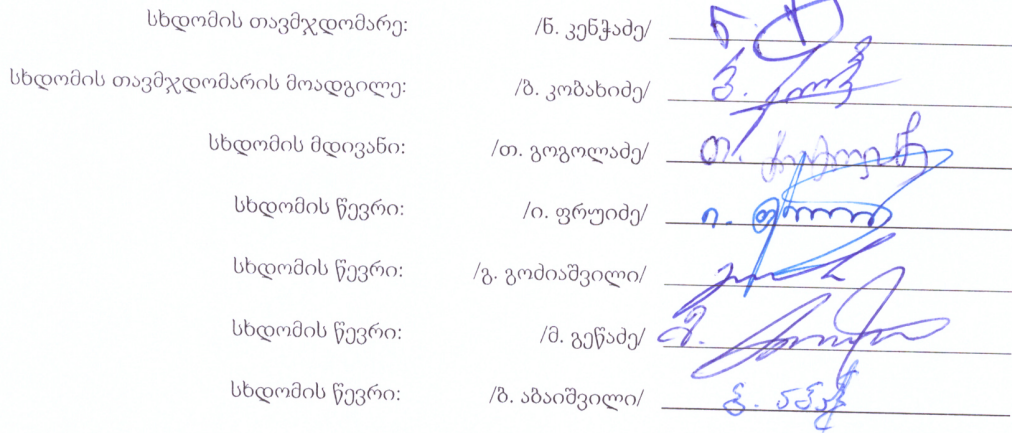 სხდომის თავმჯდომარე: /ნ. კენჭაძე/
სხდომის თავმჯდომარის მოადგილე: /ბ. კობახიძე/
სხდომის მდივანი: /თ. გოგოლაძე/
სხდომის წევრი: /ი. ფრუიძე/
სხდომის წევრი: /გ. გოძიაშვილი/
სხდომის წევრი: /მ. გეწაძე/
სხდომის წევრი: /ბ. აბაიშვილი/